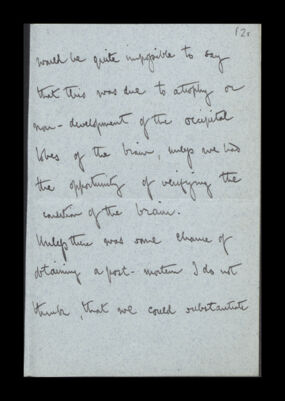 12r
would be quite impossible to say
that this was due to atrophy or
non-development of the occipital
lobes of the brain, unless we had
the opportunity of verifying the
condition of the brain.
Unless there was some chance of
obtaining a post-mortem I do not
think, that we could substantiate